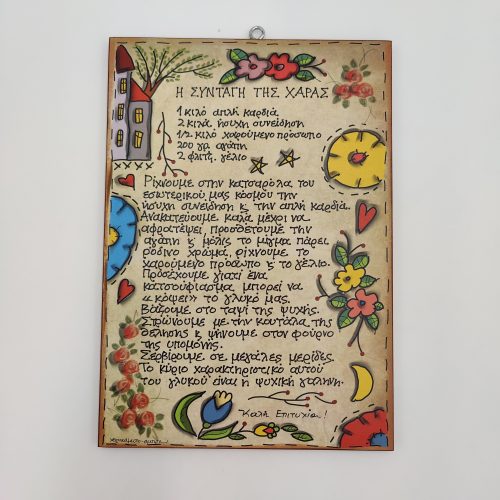 Η ΣΥΝΤΑΓΗ ΤΗΣ ΧΑΡΑΣ
1 κιλό απλή καρδιά
2 κιλά ήσυχη συνείδηση
1/2 κιλό χαρούμενο πρόσωπο
200 γρ. αγάπη
2 φλιτζ. γέλιο
Ρίχνουμε στην κατσαρόλα του
εσωτερικού μας κόσμου την
ήσυχη συνείδηση κ την απλή καρδιά.
Ανακατεύουμε καλά μέχρι να
αφρατέψει, προσθέτουμε την
αγάπη κ μόλις το μίγμα πάρει
ρόδινο χρώμα, ρίχνουμε το
χαρούμενο πρόσωπο κ το γέλιο.
Προσέχουμε γιατί ένα
κατσούφιασμα μπορεί να
«κόψει» το γλυκό μας.
Βάζουμε στο ταψί της ψυχής.
Στρώνουμε με την κουτάλα της
θέλησης κ ψήνουμε στον φούρνο
της υπομονής.
Σερβίρουμε σε μεγάλες μερίδες.
Το κύριο χαρακτηριστικό αυτού
του γλυκού είναι η ψυχική γαλήνη.
Καλή Επιτυχία!